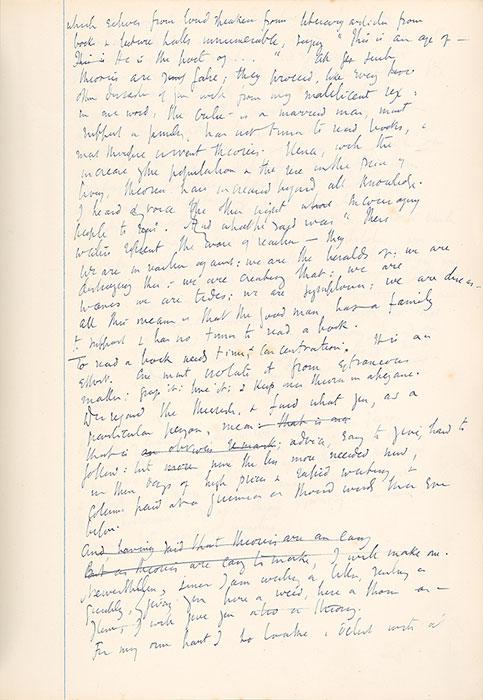 which echoes from loud speakers from literary articles from
books & lecture halls innumerable, saying "This is an age of —
This is He is the poet of . . . . " As for such
theories are false; they proceed, like every
other of from my maleficent sex:
in one word, the critic is a married man, must
support a family, has not time to read books, &
must therefore invent theories. Hence, with the
increase of the population & the rise in the price of
living, theories have increased beyond all knowledge.
I heard a voice the other night encouraging
people to And what he said was "These
writers represent the wave of reaction — they
We are in reaction against: we are the heralds of: we are
destroying this: we are creating that: we are
waves we are tides: we are symptoms: we are
all this means is that the good man has a family
to support & has no time to read a book.
To read a book needs time, & concentration. It is an
effort. One must isolate it from extraneous
matter: grasp it: & keep
Disregard the theorists, & find what you, as a
particular person, mean: that is an
that is an obvious remark; advice, easy to give, hard to
follow: but more none the less more needed now,
in these days of high prices & rapid writing, &
column paid at a guinea a thousand words than ever
before.
And having said that theories are an easy
But as theories are easy to make, I will make one.
Nevertheless, since I am writing a letter,
giving you here a weed, here a thorn
I will give you also a theory.
For my own part I with a